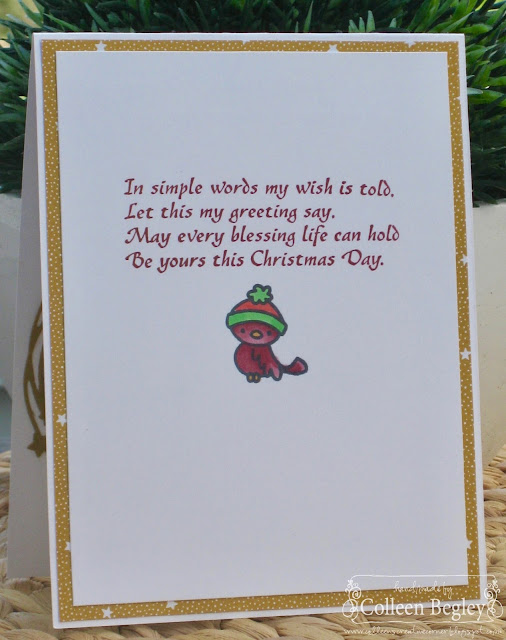 In simple words my wish is told,
Let this my greeting say,
May every blessing life can hold
Be yours this Christmas Day.
handmade by
Colleen Begley